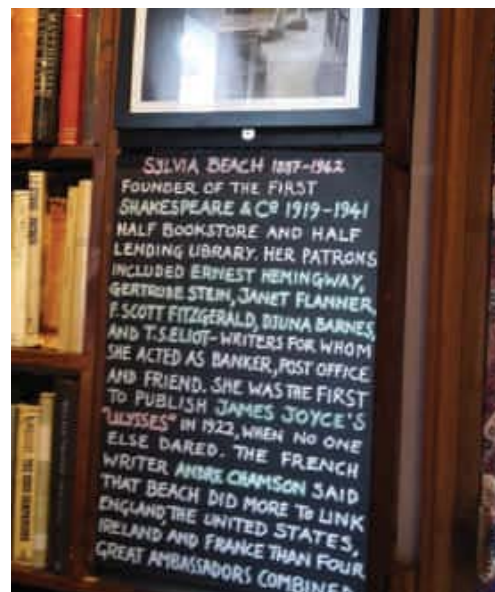 SYLVIA BEACH 1887-1962
FOUNDER OF THE FIRST
SHAKESPEARE & CO 1919-1941
HALF BOOKSTORE AND HALF
LENDING LIBRARY. HER PATRONS
INCLUDED ERNEST HEMINGWAY,
GERTRUDE STEIN, JANET FLANNER,
F. SCOTT FITZGERALD, DJUNA BARNES,
AND T.S. ELIOT- WRITERS FOR WHOM
SHE ACTED AS BANKER, POST OFFICE
AND FRIEND. SHE WAS THE FIRST
TO PUBLISH JAMES JOYCE'S
"ULYSSES" IN 1922, WHEN NO ONE
ELSE DARED. THE FRENCH
WRITER ANDRE CHAMSON SAID
THAT BEACH DID MORE TO LINK
ENGLAND, THE UNITED STATES,
IRELAND AND FRANCE THAN FOUR
GREAT AMBASSADORS COMBINED